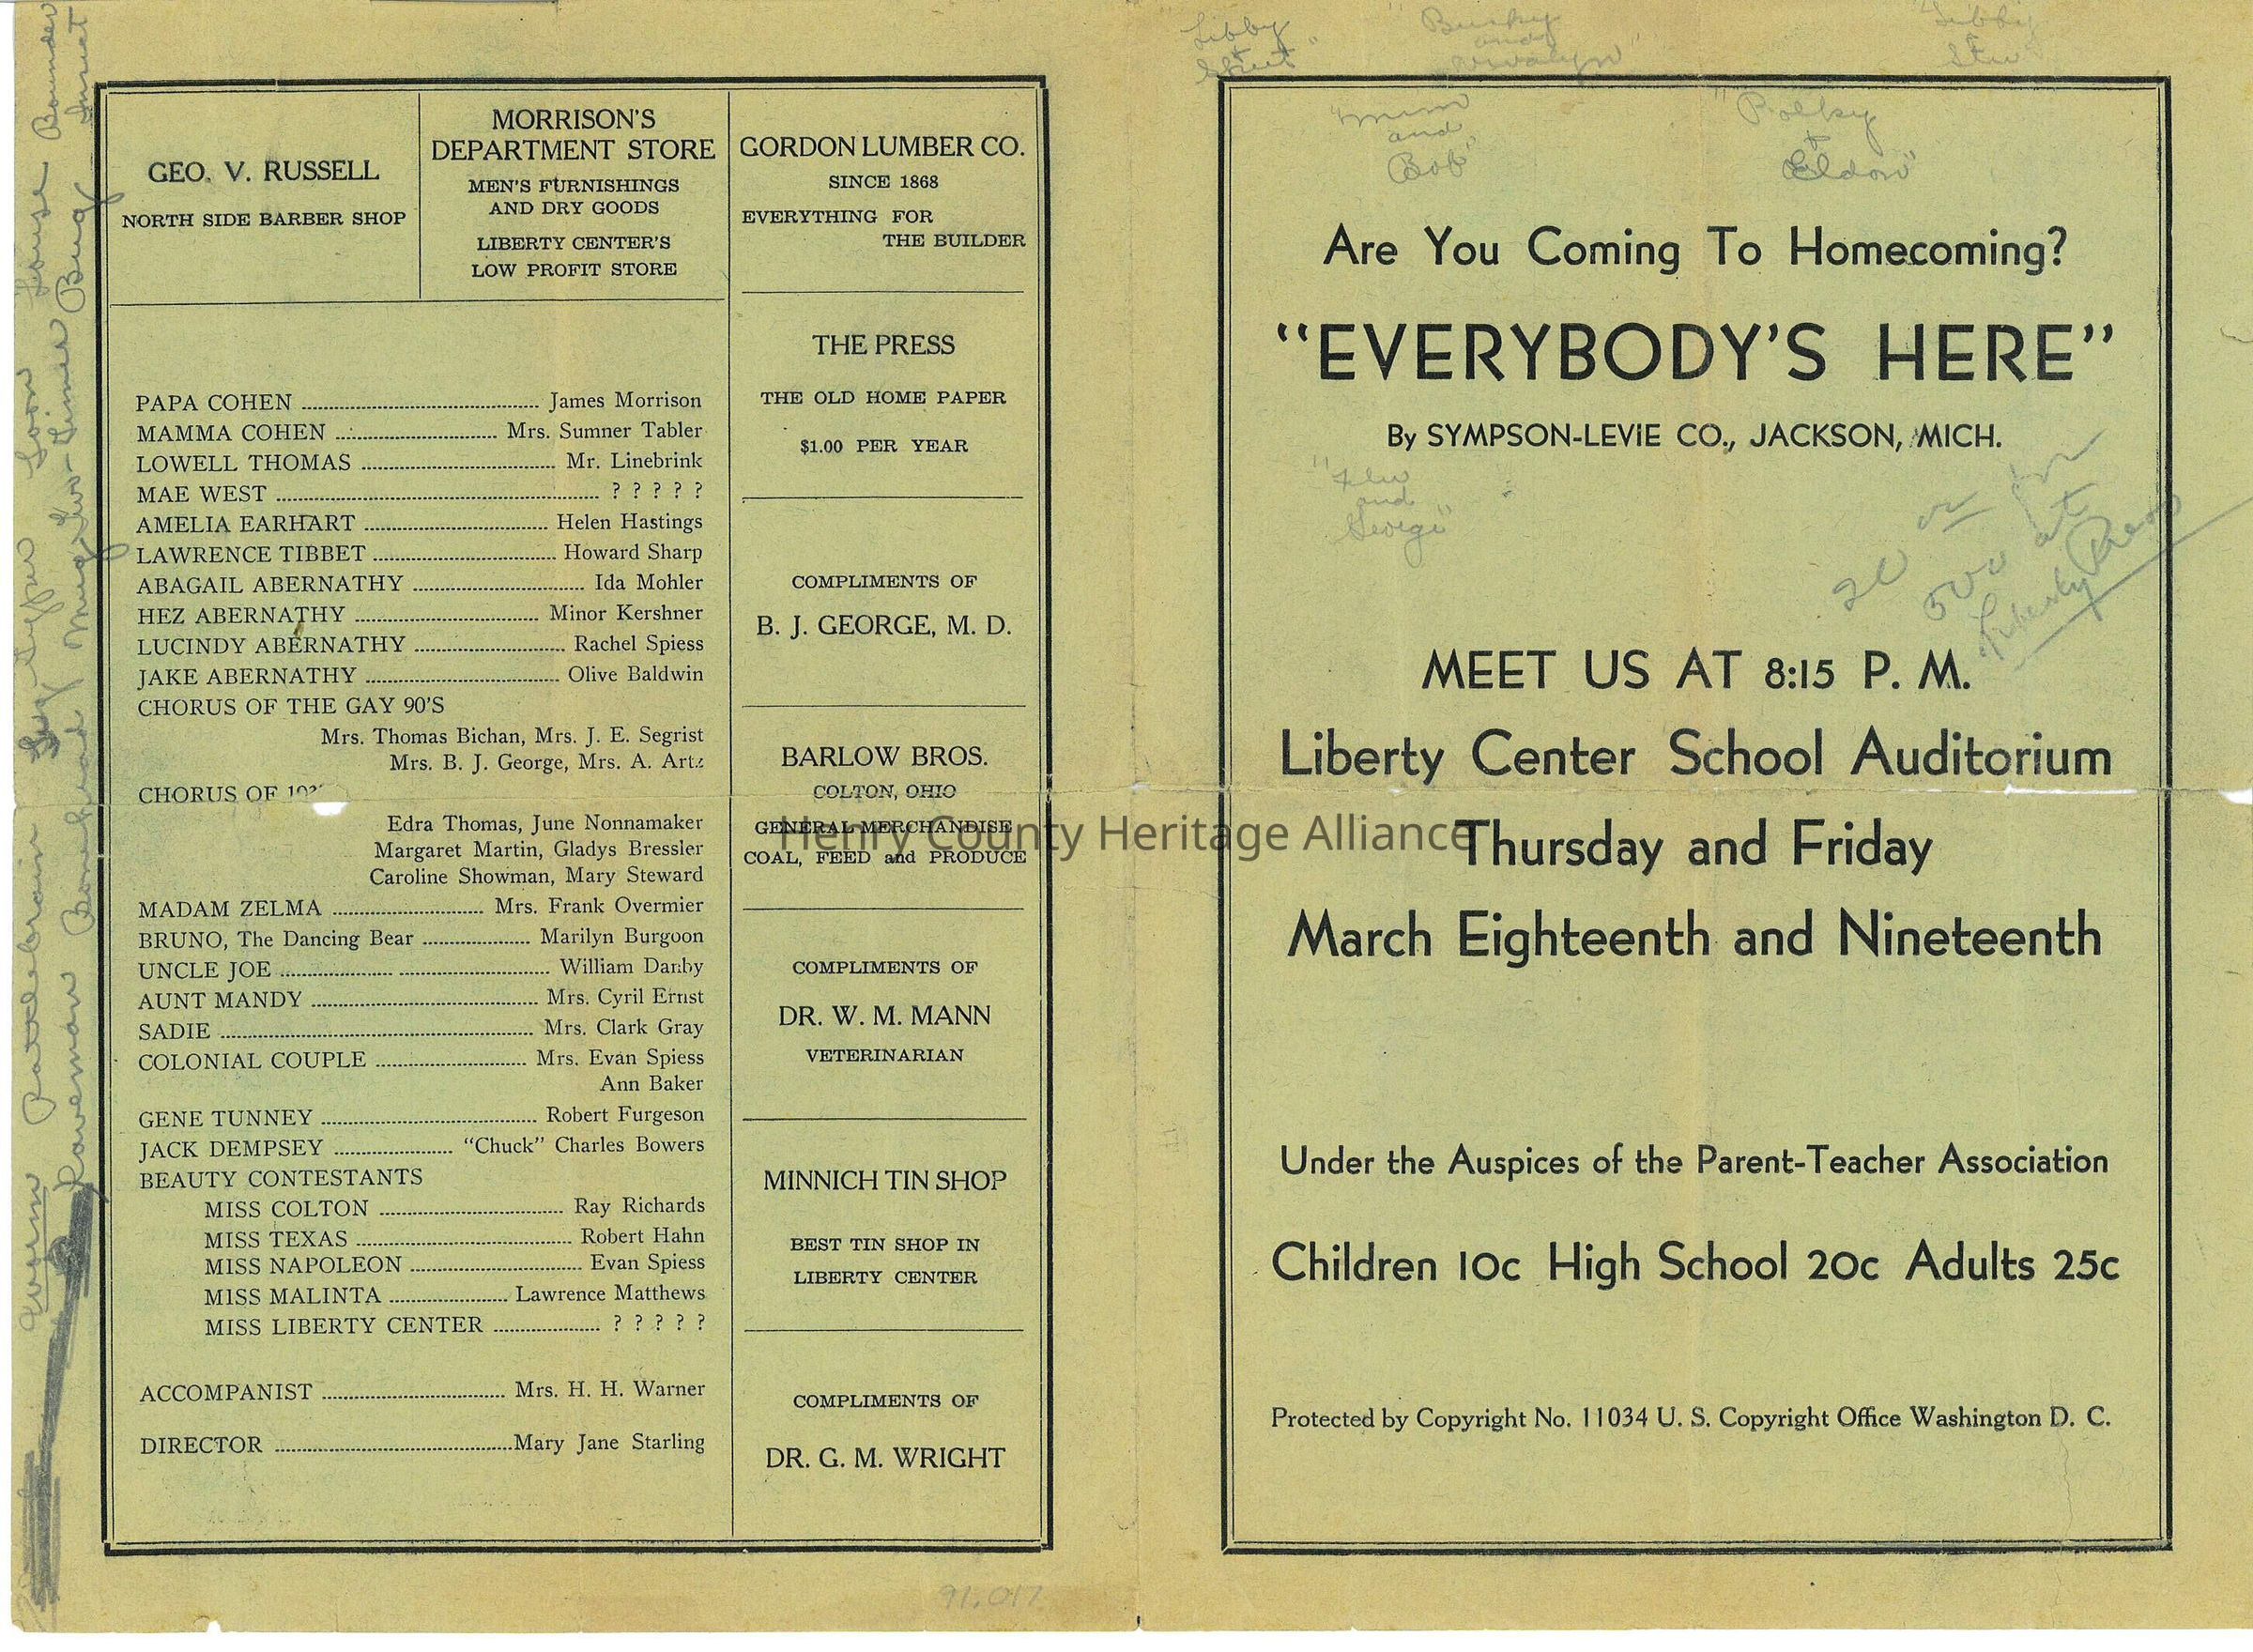 GEO. V. RUSSELL
NORTH SIDE BARBER SHOP
MORRISON'S
DEPARTMENT STORE
MEN'S FURNISHINGS
AND DRY GOODS
LIBERTY CENTER'S
LOW PROFIT STORE
GORDON LUMBER CO.
SINCE 1868
EVERYTHING FOR
THE BUILDER
PAPA COHEN ........ James Morrison
MAMMA COHEN ........ Mrs. Sumner Tabler
LOWELL THOMAS ........ Mr. Linebrink
MAE WEST ........ ? ? ? ? ?
AMELIA EARHART ........ Helen Hastings
LAWRENCE TIBBET ........ Howard Sharp
ABAGAIL ABERNATHY ........ Ida Mohler
HEZ ABERNATHY ........ Minor Kershner
LUCINDY ABERNATHY ........ Rachel Spiess
JAKE ABERNATHY ........ Olive Baldwin
CHORUS OF THE GAY 90'S
Mrs. Thomas Bichan, Mrs. J. E. Segrist
Mrs. B. J. George, Mrs. A. Arts
CHORUS OF
Edra Thomas, June Nonnamaker
Margaret Martin, Gladys Bressler
Caroline Showman, Mary Steward
MADAM ZELMA ........ Mrs. Frank Overmier
BRUNO, The Dancing Bear ........ Marilyn Burgoon
UNCLE JOE ........ William Danby
AUNT MANDY ........ Mrs. Cyril Ernst
SADIE ........ Mrs. Clark Gray
COLONIAL COUPLE ........ Mrs. Evan Spiess
Ann Baker
GENE TUNNEY ........ Robert Furgeson
JACK DEMPSEY ........ "Chuck" Charles Bowers
BEAUTY CONTESTANTS
MISS COLTON ........ Ray Richards
MISS TEXAS ........ Robert Hahn
MISS NAPOLEON ........ Evan Spiess
MISS MALINTA ........ Lawrence Matthews
MISS LIBERTY CENTER ........ ? ? ? ? ?
ACCOMPANIST ........ Mrs. H. H. Warner
DIRECTOR ........ Mary Jane Starling
THE PRESS
THE OLD HOME PAPER
$1.00 PER YEAR
COMPLIMENTS OF
B. J. GEORGE, M. D.
BARLOW BROS.
COLTON, OHIO
GENERAL MERCHANDISE
COAL, FEED and PRODUCE
COMPLIMENTS OF
DR. W. M. MANN
VETERINARIAN
MINNICH TIN SHOP
BEST TIN SHOP IN
LIBERTY CENTER
COMPLIMENTS OF
DR. G. M. WRIGHT
91.017
Henry County Heritage Alliance
"Mim
and
Bob"
Eldon"
Are You Coming To Homecoming?
"EVERYBODY'S HERE"
By SYMPSON-LEVIE CO., JACKSON, MICH.
and
George"
MEET US AT 8:15 P. M.
Liberty Center School Auditorium
Thursday and Friday
March Eighteenth and Nineteenth
Under the Auspices of the Parent-Teacher Association
Children 10c High School 20c Adults 25c
Protected by Copyright No. 11034 U. S. Copyright Office Washington D. C.